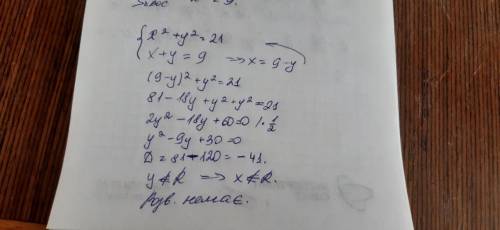 {x² + y² = 21
x + y = 9 ⟹ x = 9 - y
(9-y)² + y² = 21
81 - 18y + y² + y² = 21
2y² - 18y + 60 = 0 / · 1/2
y² - 9y + 30 = 0
D = 81 - 120 = -41.
y ∉ R ⟹ x ∉ R.
Розв. немає.